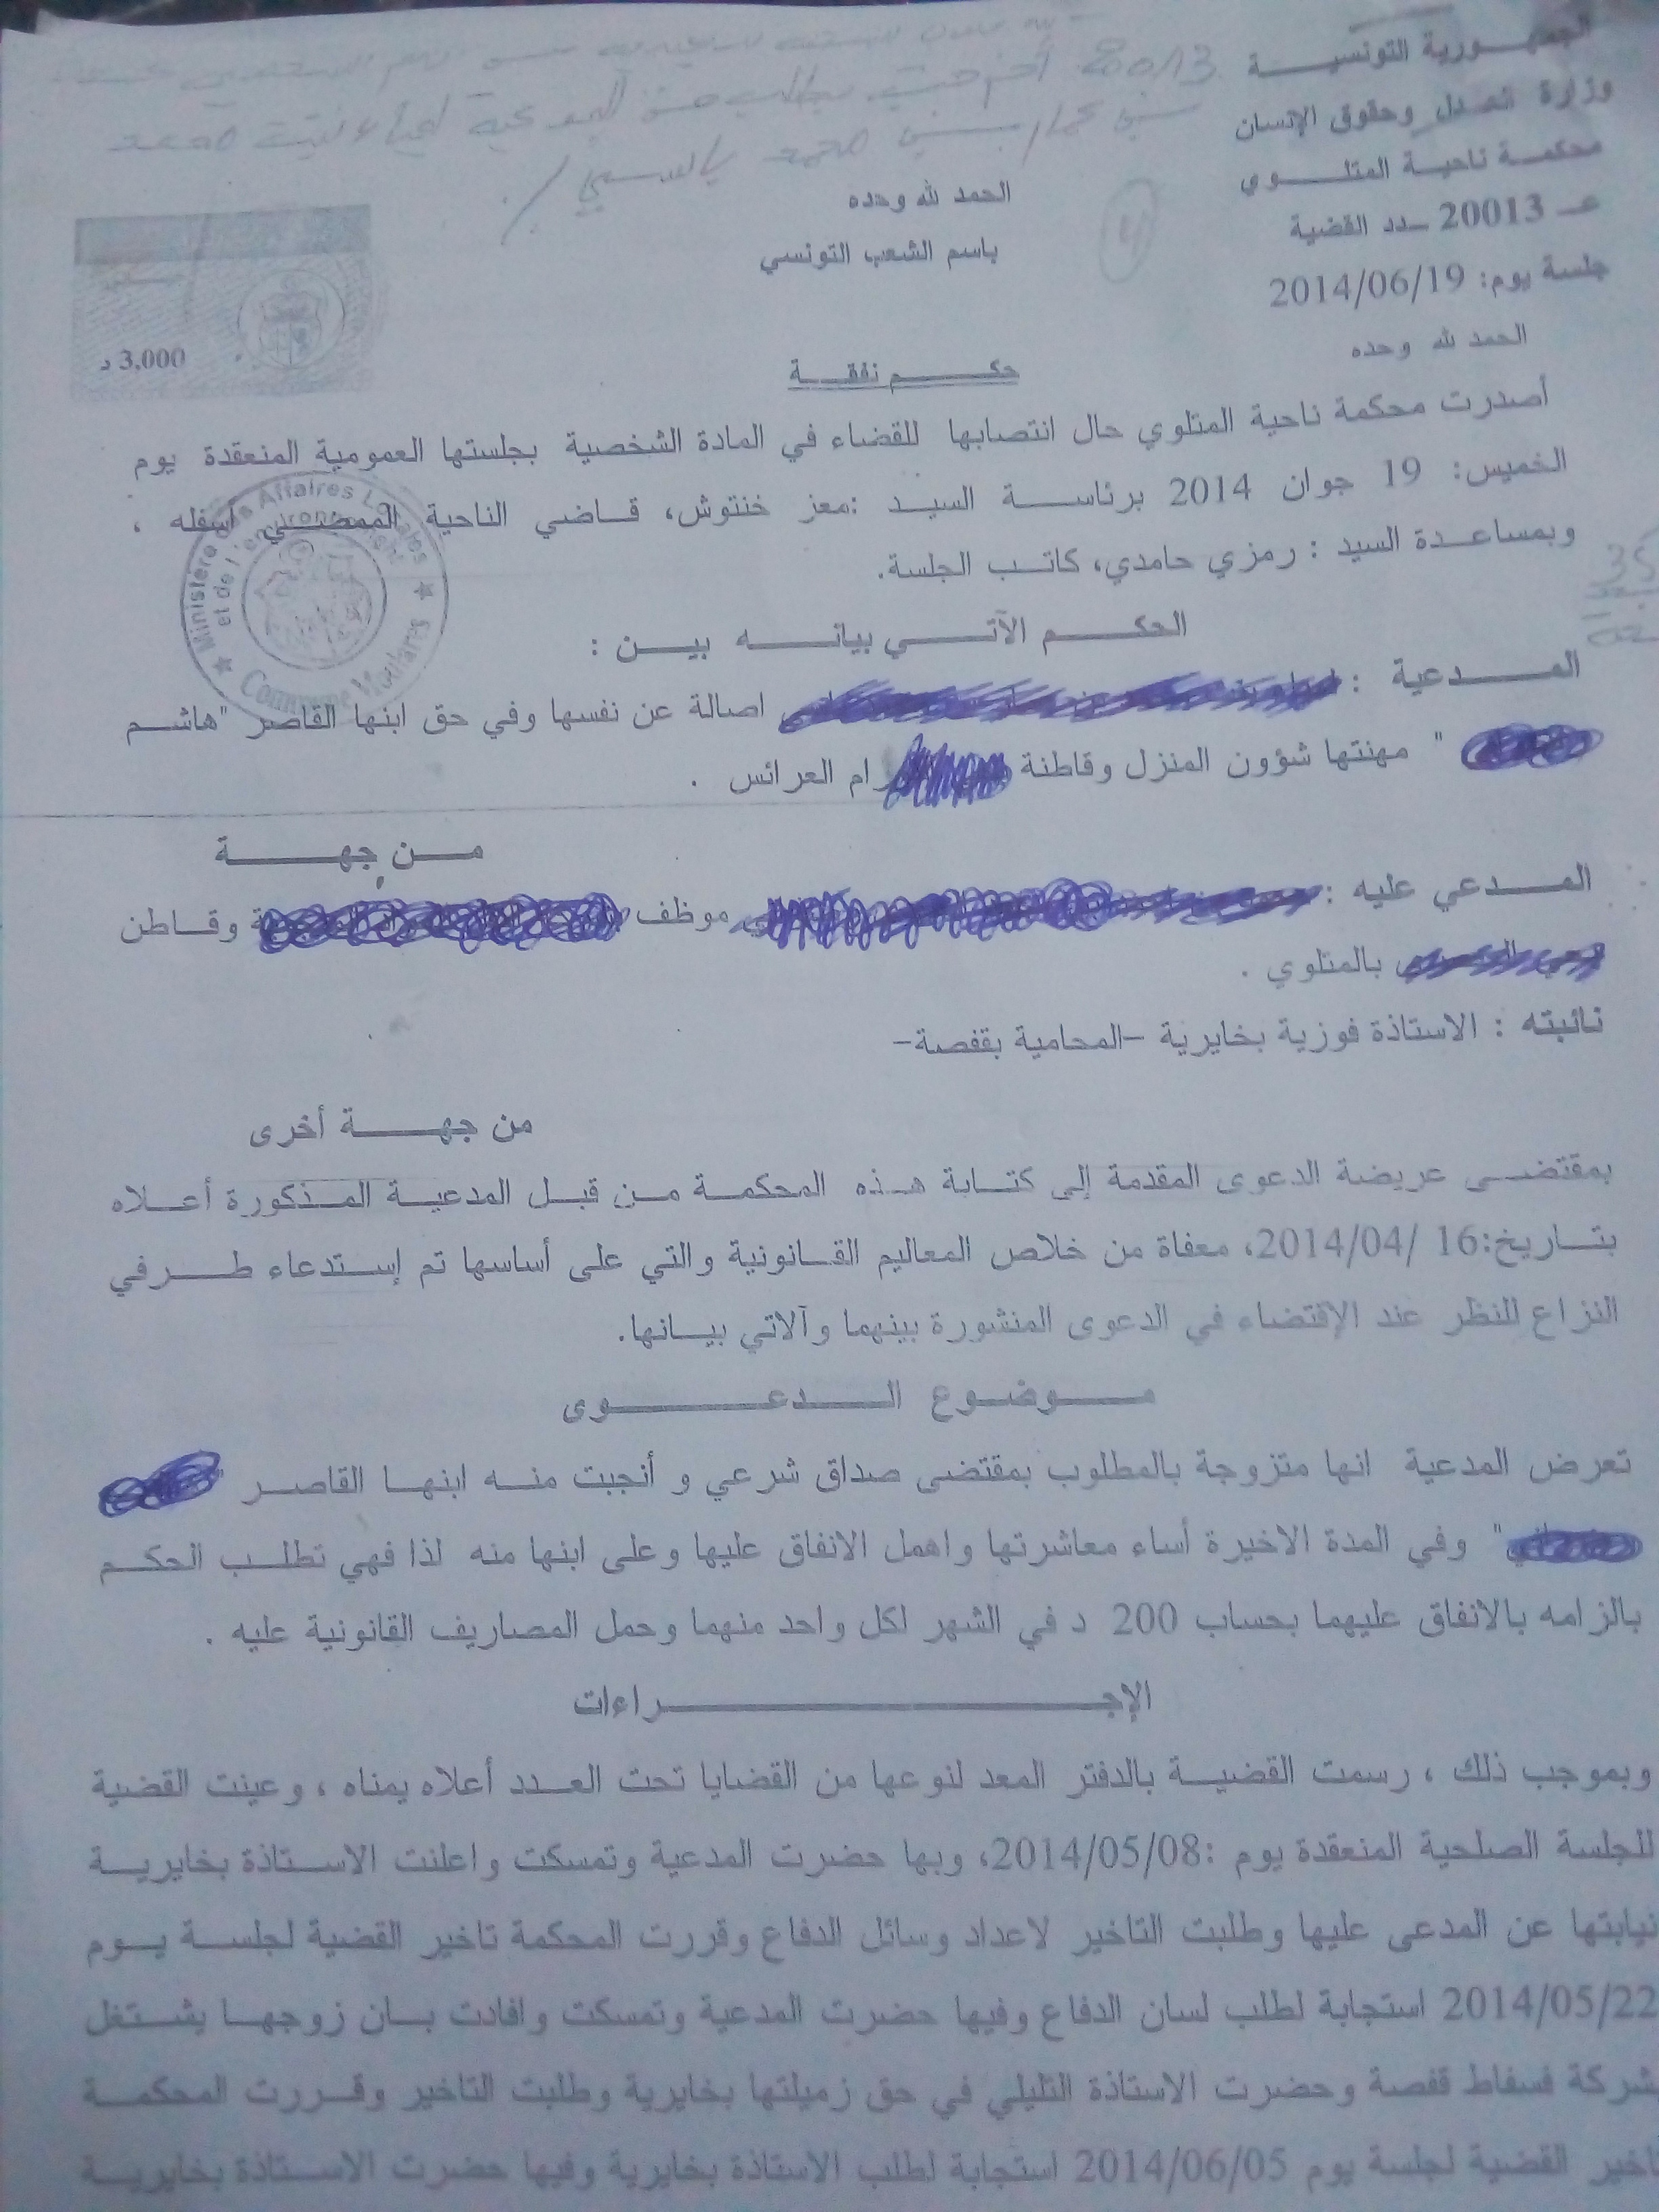 الجمهورية التونسية
وزارة العدل وحقوق الإنسان
محكمة ناحية المتلوي
عـ 20013 ـدد القضية
جلسة يوم: 2014/06/19
الحمد لله وحده
باسم الشعب التونسي
3,000 د
الحمد لله وحده
حكم نفقة
أصدرت محكمة ناحية المتلوي حال انتصابها للقضاء في المادة الشخصية بجلستها العمومية المنعقدة يوم
الخميس: 19 جوان 2014 برئاسة السيد :معز خنتوش، قاضي الناحية الممضي اسفله ،
وبمساعدة السيد : رمزي حامدي، كاتب الجلسة.
Ministère des Affaires Locales et de l'environnement
Commune Moulares
الحكم الآتي بيانه بين :
المدعية : اصالة عن نفسها وفي حق ابنها القاصر "هاشم
" مهنتها شؤون المنزل وقاطنة ام العرائس .
من جهة
المدعي عليه : موظف وقاطن
بالمتلوي .
نائبته : الاستاذة فوزية بخايرية –المحامية بقفصة–
من جهة أخرى
بمقتضى عريضة الدعوى المقدمة إلى كتابة هذه المحكمة من قبل المدعية المذكورة أعلاه
بتاريخ:16 /2014/04، معفاة من خلاص المعاليم القانونية والتي على أساسها تم إستدعاء طرفي
النزاع للنظر عند الإقتضاء في الدعوى المنشورة بينهما وآلاتي بيانها.
موضوع الدعوى
تعرض المدعية انها متزوجة بالمطلوب بمقتضى صداق شرعي و أنجبت منه ابنها القاصر "
" وفي المدة الاخيرة أساء معاشرتها واهمل الانفاق عليها وعلى ابنها منه لذا فهي تطلب الحكم
بالزامه بالانفاق عليهما بحساب 200 د في الشهر لكل واحد منهما وحمل المصاريف القانونية عليه .
الإجراءات
وبموجب ذلك ، رسمت القضية بالدفتر المعد لنوعها من القضايا تحت العدد أعلاه يمناه ، وعينت القضية
للجلسة الصلحية المنعقدة يوم :2014/05/08، وبها حضرت المدعية وتمسكت واعلنت الاستاذة بخايرية
نيابتها عن المدعى عليها وطلبت التاخير لاعداد وسائل الدفاع وقررت المحكمة تاخير القضية لجلسة يوم
2014/05/22 استجابة لطلب لسان الدفاع وفيها حضرت المدعية وتمسكت وافادت بان زوجها يشتغل
بشركة فسفاط قفصة وحضرت الاستاذة التليلي في حق زميلتها بخايرية وطلبت التاخير وقررت المحكمة
تاخير القضية لجلسة يوم 2014/06/05 استجابة لطلب الاستاذة بخايرية وفيها حضرت الاستاذة بخايرية